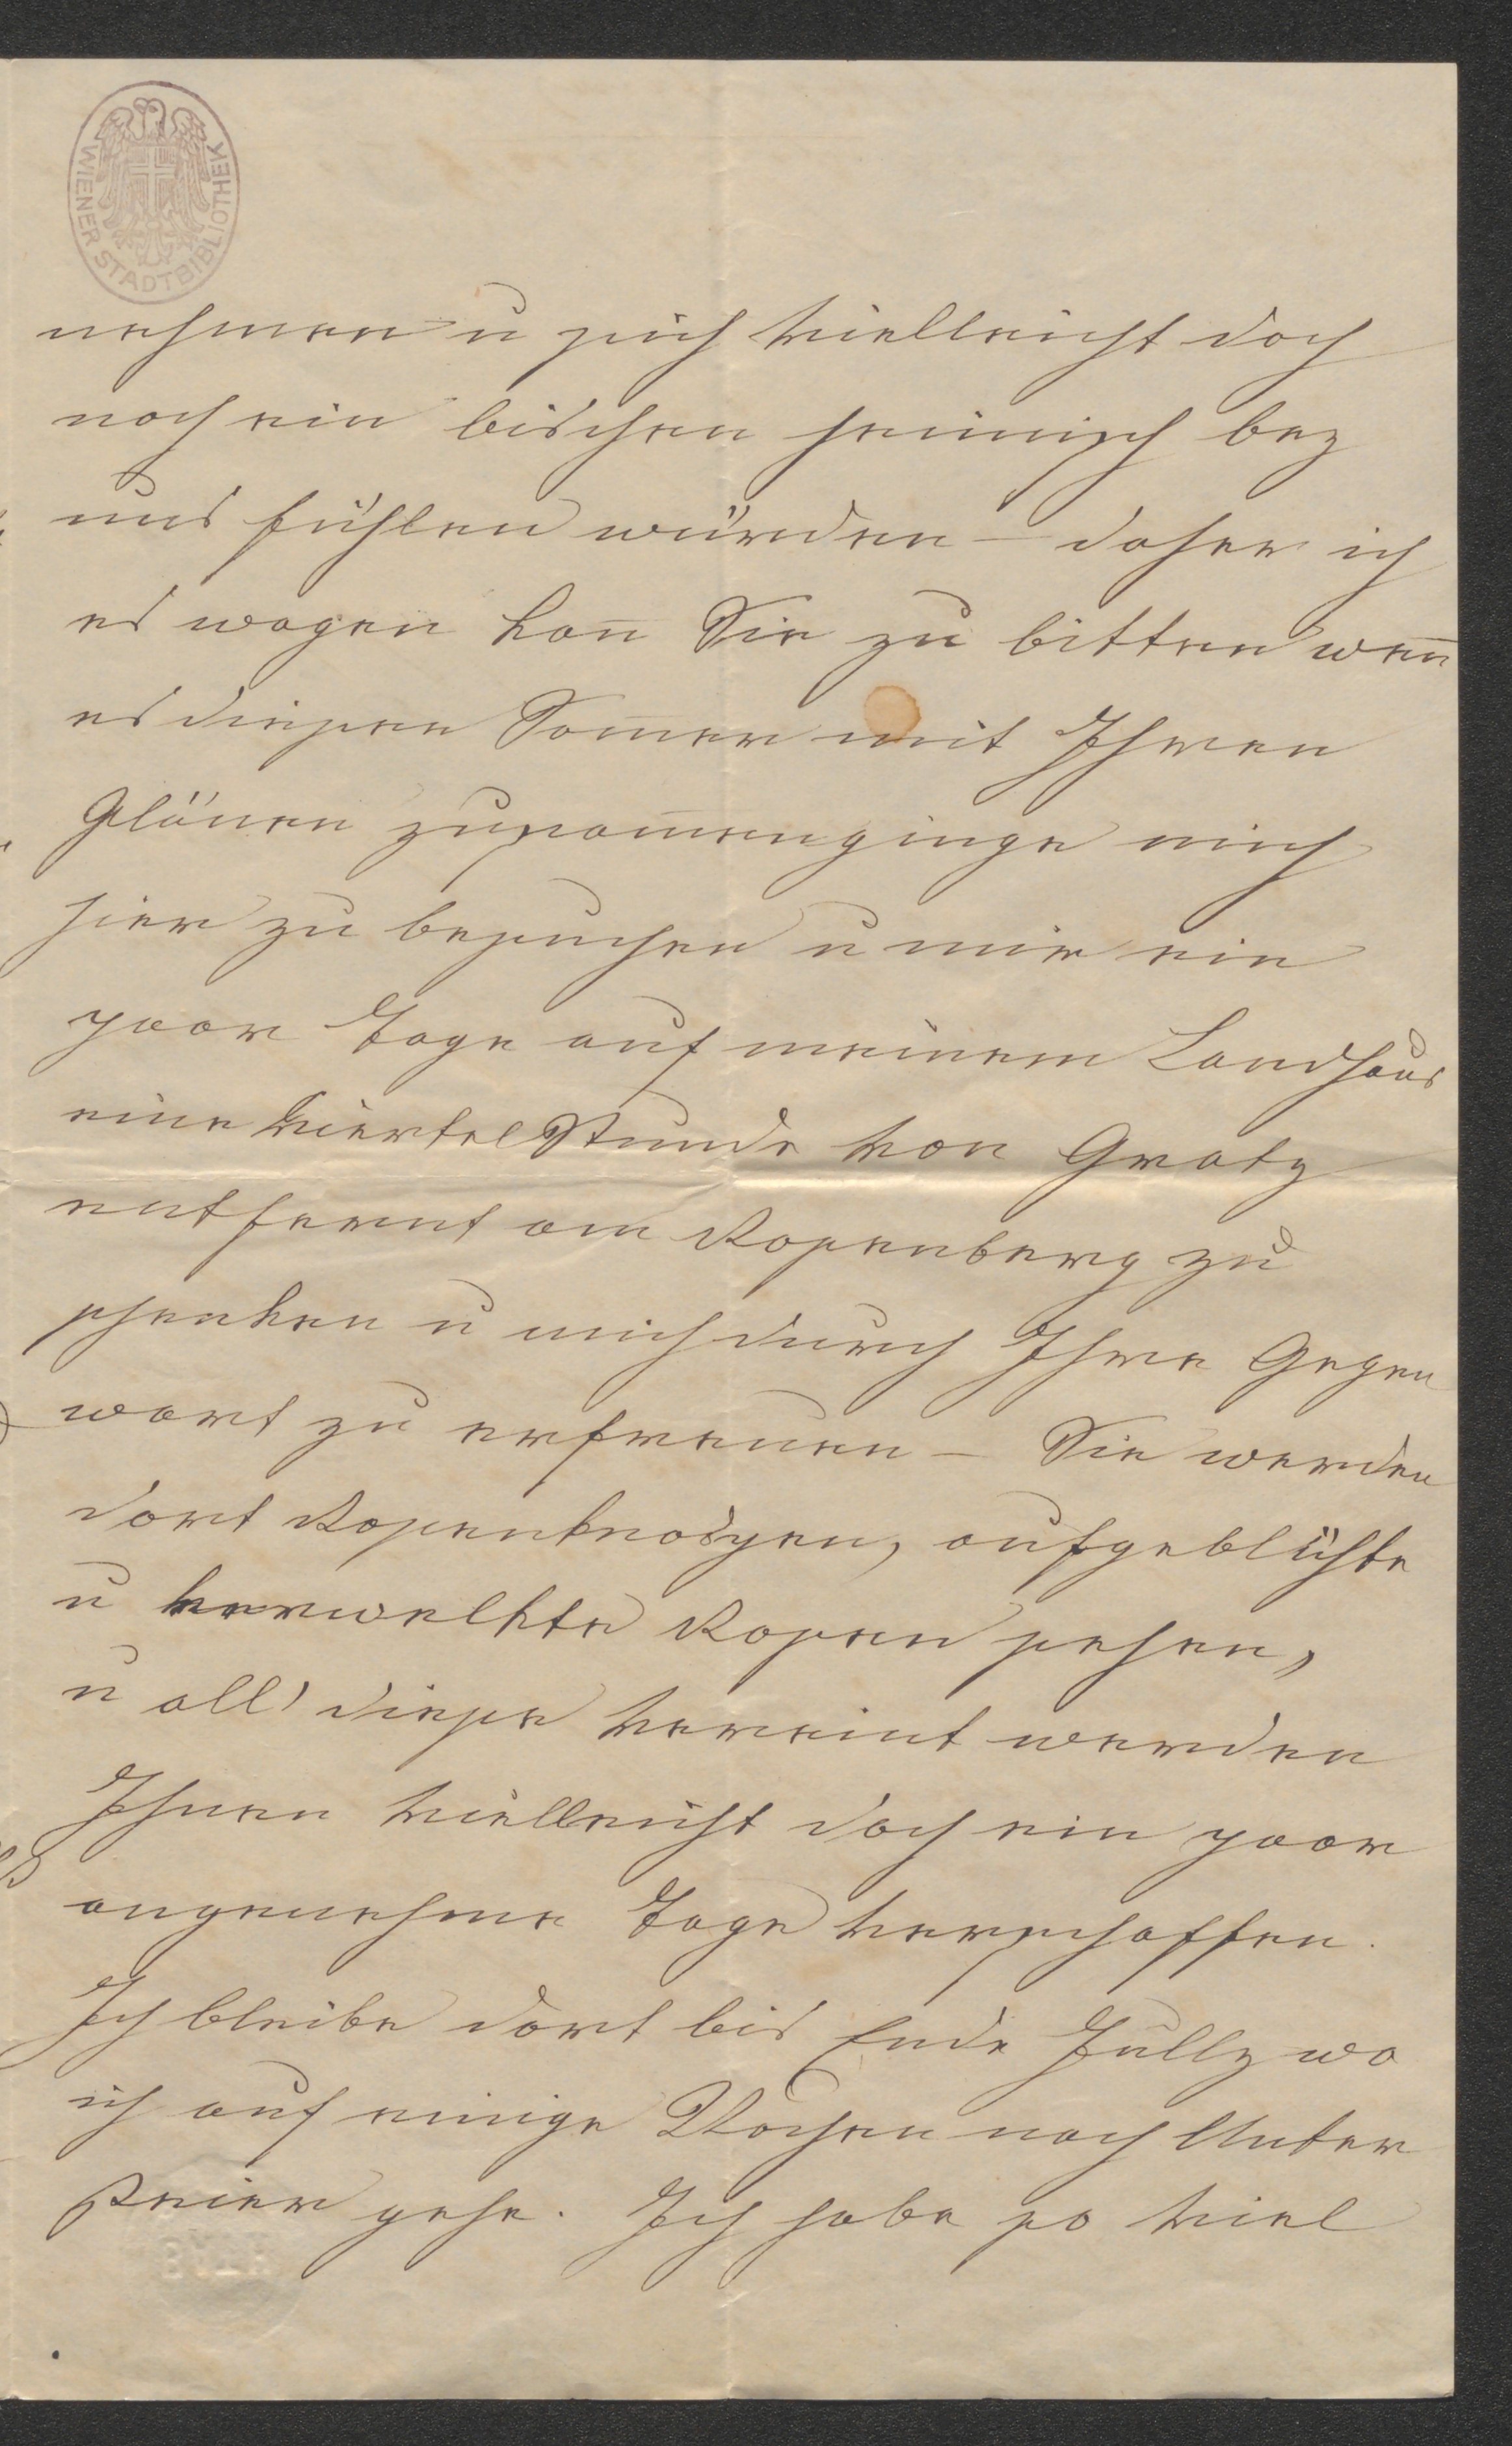 WIENER STADTBIBLIOTHEK
nehmen u sich vielleicht doch
noch ein bischen heimisch bey
uns fühlen würden – daher ich
es wagen kan̄ Sie zu bitten wen̄
es diesen Som̄er mit Ihren
Plänen zusam̄enginge mich
hier zu besuchen u mir ein
paar Tage auf meinem Landhaus
eine viertel Stunde von Gratz
entfernt am Rosenberg zu
schenken u mich durch Ihre Gegen
wart zu erfreuen – Sie werden
dort Rosenknospen, aufgeblühte
u verwelkte Rosen sehen,
u all' diese vereint werden
Ihnen vielleicht doch ein paar
angenehme Tage verschaffen.
Ich bleibe dort bis Ende Jully wo
ich auf einige Wochen nach Unter
steier gehe. Ich habe so viel